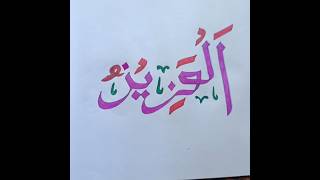 اَلْعَزِيْزُ